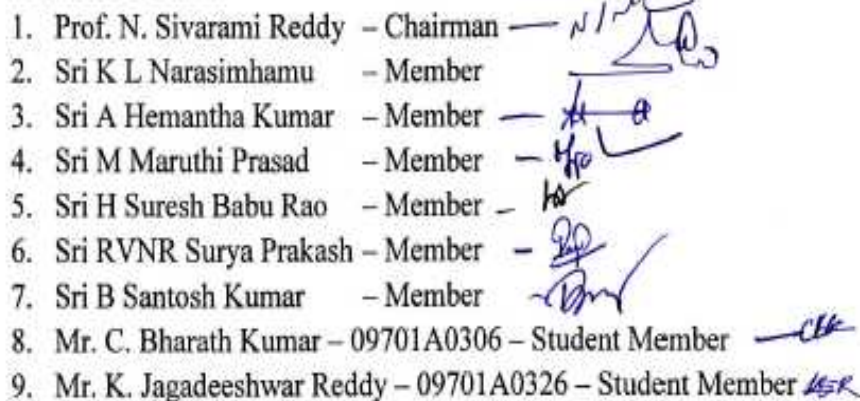 1. Prof. N. Sivarami Reddy – Chairman
2. Sri K L Narasimhamu – Member
3. Sri A Hemantha Kumar – Member
4. Sri M Maruthi Prasad – Member
5. Sri H Suresh Babu Rao – Member
6. Sri RVNR Surya Prakash – Member
7. Sri B Santosh Kumar – Member
8. Mr. C. Bharath Kumar – 09701A0306 – Student Member
9. Mr. K. Jagadeeshwar Reddy – 09701A0326 – Student Member